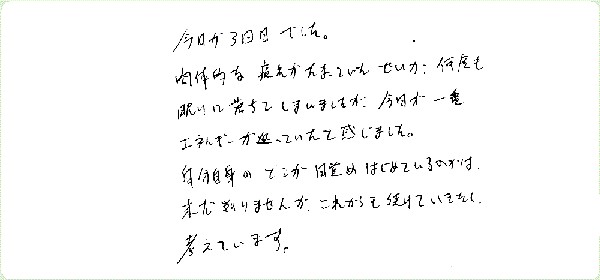 今日が3回目でした。
肉体的な疲れがたまっていたせいか、何度も
眠りに落ちてしまいましたが、今日が一番
エネルギーが巡っていたと感じました。
自分自身のどこが目覚めはじめているのかは、
まだ解りませんが、これからも続けていきたいと
考えています。